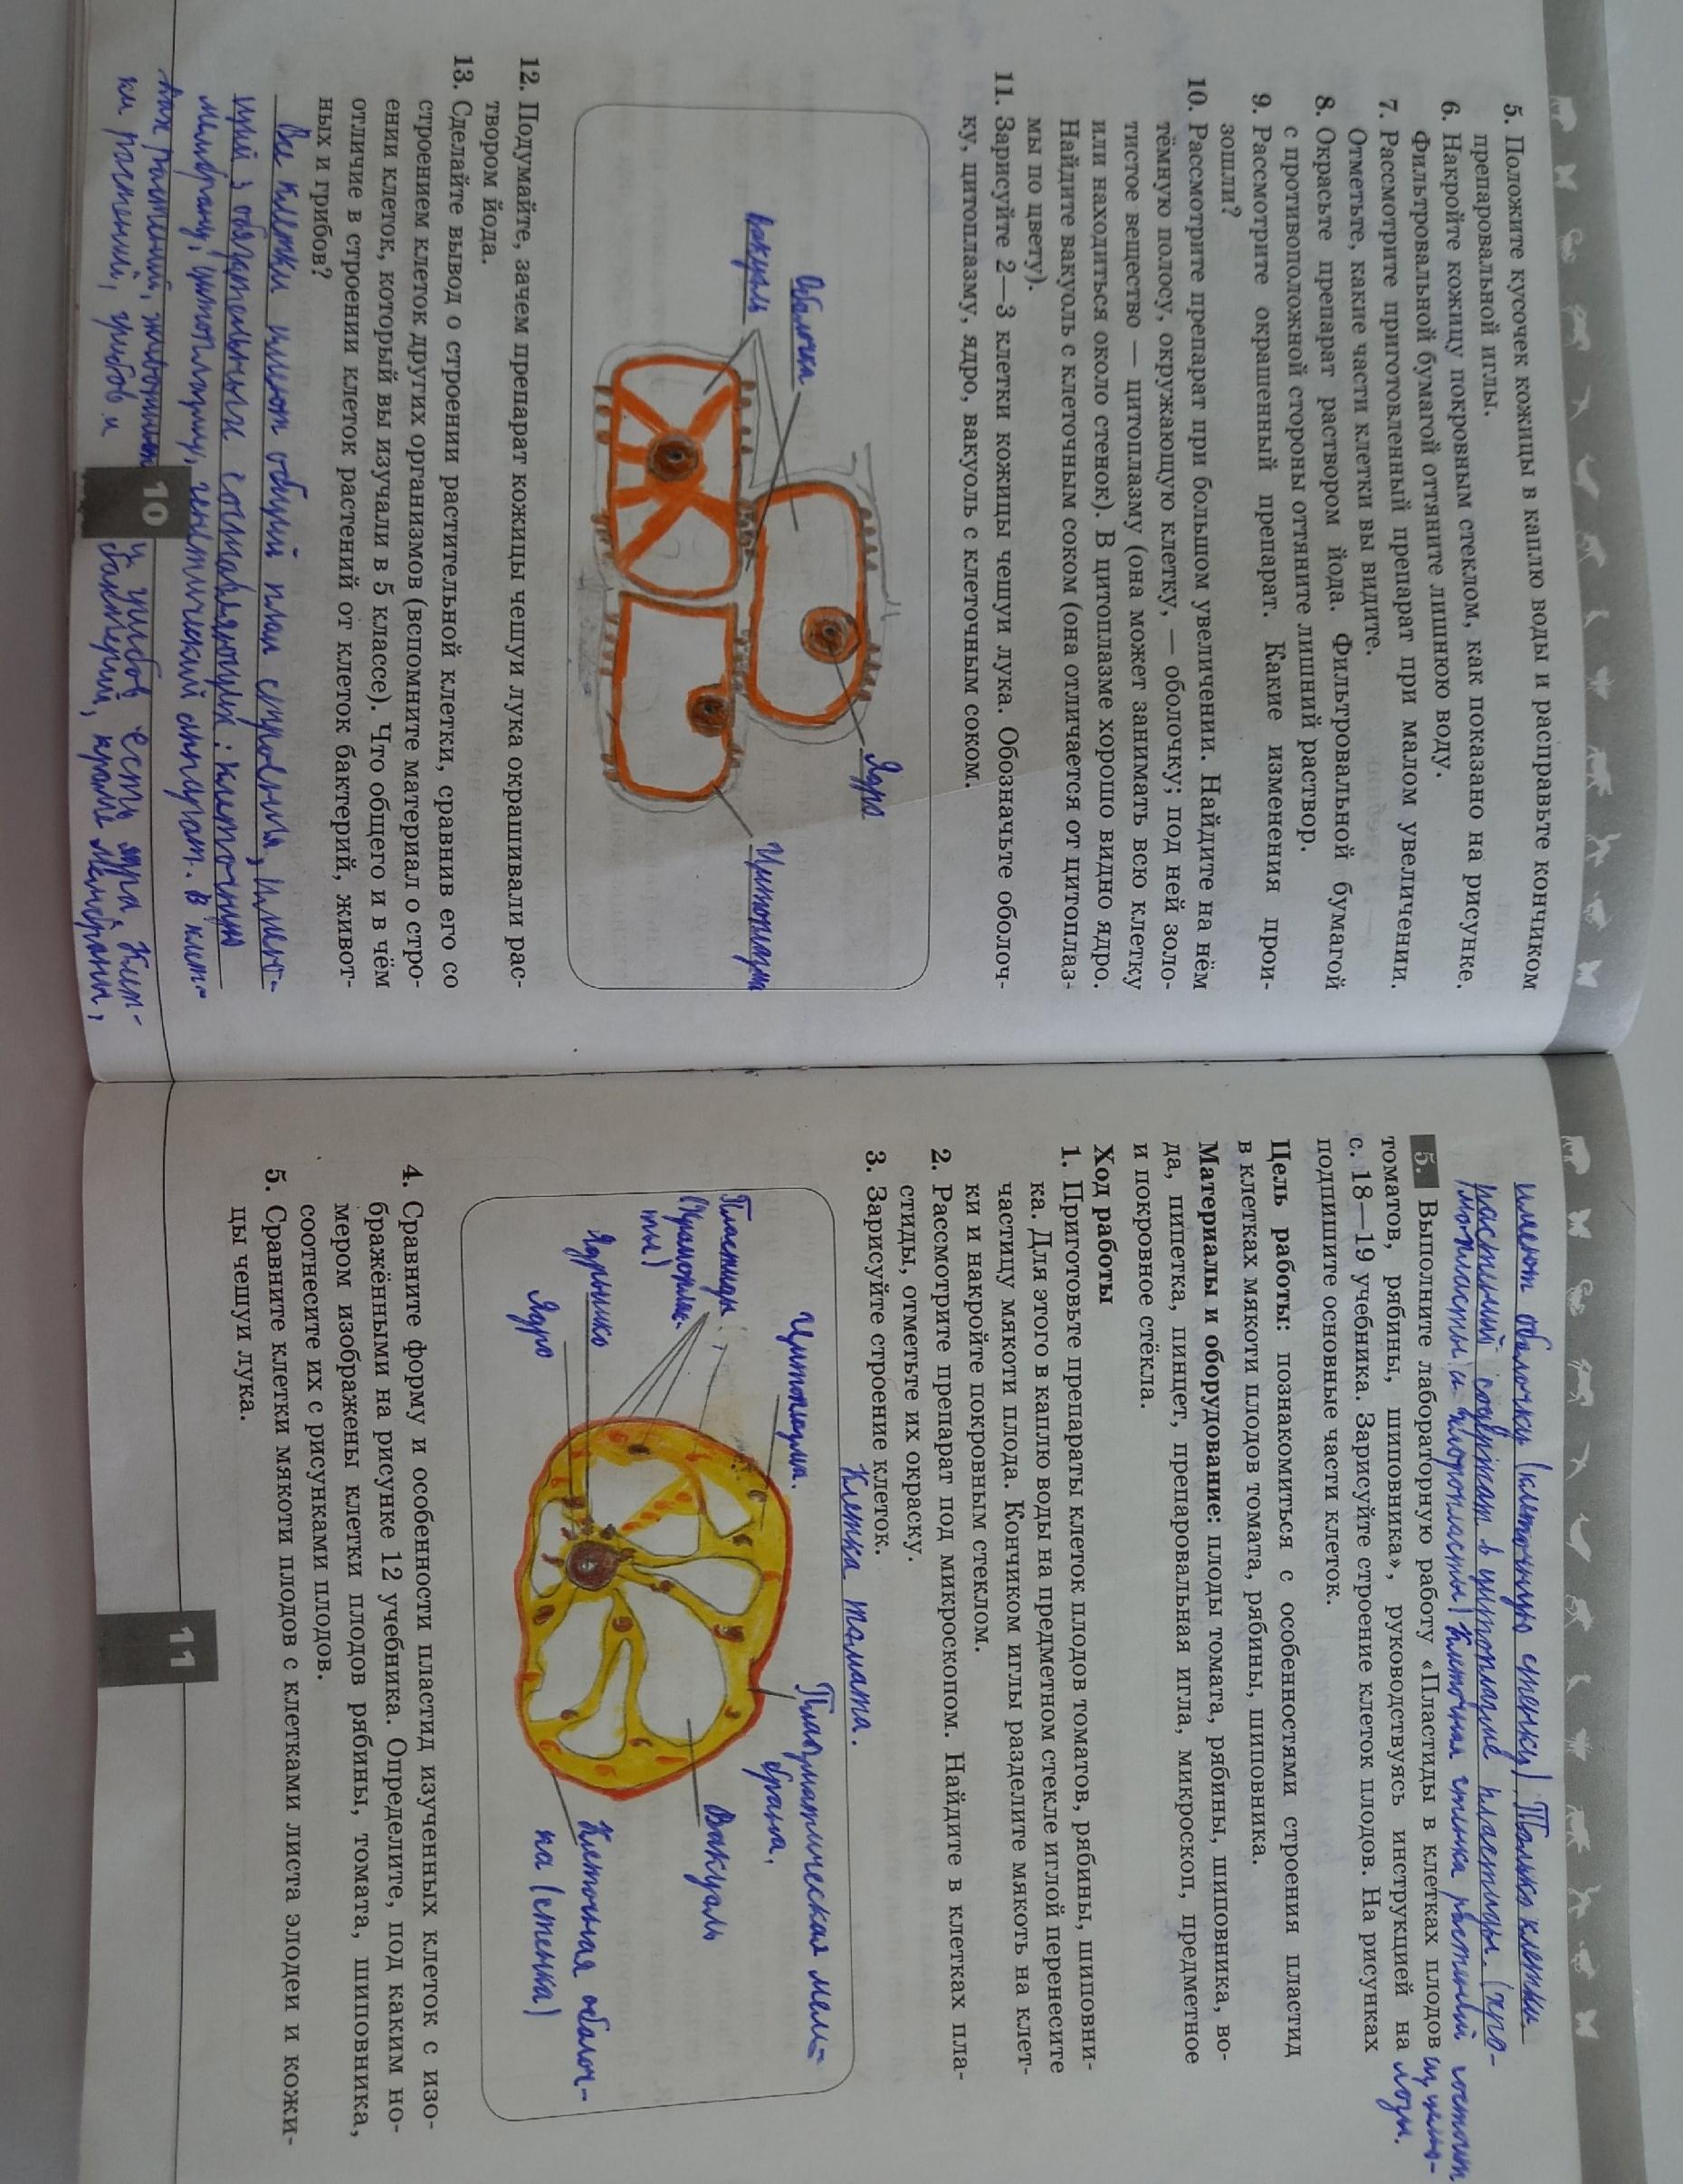 5. Положите кусочек кожицы в каплю воды и расправьте кончиком
препаровальной иглы.
6. Накройте кожицу покровным стеклом, как показано на рисунке.
Фильтровальной бумагой оттяните лишнюю воду.
7. Рассмотрите приготовленный препарат при малом увеличении.
Отметьте, какие части клетки вы видите.
8. Окрасьте препарат раствором йода. Фильтровальной бумагой
с противоположной стороны оттяните лишний раствор.
9. Рассмотрите окрашенный препарат. Какие изменения прои-
зошли?
10. Рассмотрите препарат при большом увеличении. Найдите на нём
тёмную полосу, окружающую клетку, — оболочку; под ней золо-
тистое вещество — цитоплазму (она может занимать всю клетку
или находиться около стенок). В цитоплазме хорошо видно ядро.
Найдите вакуоль с клеточным соком (она отличается от цитоплаз-
мы по цвету).
11. Зарисуйте 2—3 клетки кожицы чешуи лука. Обозначьте оболоч-
ку, цитоплазму, ядро, вакуоль с клеточным соком.
Оболочка
Вакуоль
Ядро
Цитоплазма
12. Подумайте, зачем препарат кожицы чешуи лука окрашивали рас-
твором йода.
13. Сделайте вывод о строении растительной клетки, сравнив его со
строением клеток других организмов (вспомните материал о стро-
ении клеток, который вы изучали в 5 классе). Что общего и в чём
отличие в строении клеток растений от клеток бактерий, живот-
ных и грибов?
Все клетки имеют общий план строения, имею-
щий 3 обязательных составляющих: клеточную
мембрану, цитоплазму, генетический аппарат. В клет-
ках растений, животных и грибов есть ядра. Клет-
ки растений, грибов и бактерий, кроме мембраны,
10
имеют оболочку (клеточную стенку) Только клетки
растений содержат в цитоплазме пластиды. (хро-
мопласты и хлоропласты) Клеточная стенка растений состоит
из целю-
лозы.
5. Выполните лабораторную работу «Пластиды в клетках плодов
томатов, рябины, шиповника», руководствуясь инструкцией на
с. 18—19 учебника. Зарисуйте строение клеток плодов. На рисунках
подпишите основные части клеток.
Цель работы: познакомиться с особенностями строения пластид
в клетках мякоти плодов томата, рябины, шиповника.
Материалы и оборудование: плоды томата, рябины, шиповника, во-
да, пипетка, пинцет, препаровальная игла, микроскоп, предметное
и покровное стёкла.
Ход работы
1. Приготовьте препараты клеток плодов томатов, рябины, шиповни-
ка. Для этого в каплю воды на предметном стекле иглой перенесите
частицу мякоти плода. Кончиком иглы разделите мякоть на клет-
ки и накройте покровным стеклом.
2. Рассмотрите препарат под микроскопом. Найдите в клетках пла-
стиды, отметьте их окраску.
3. Зарисуйте строение клеток.
Клетка томата.
Цитоплазма.
Плазматическая мем-
брана,
Пластиды
(Хромоплас.
ты)
Вакуоль
Ядрышко
Клеточная оболоч-
ка (стенка)
Ядро
4. Сравните форму и особенности пластид изученных клеток с изо-
бражёнными на рисунке 12 учебника. Определите, под каким но-
мером изображены клетки плодов рябины, томата, шиповника,
соотнесите их с рисунками плодов.
5. Сравните клетки мякоти плодов с клетками листа элодеи и кожи-
цы чешуи лука.
11